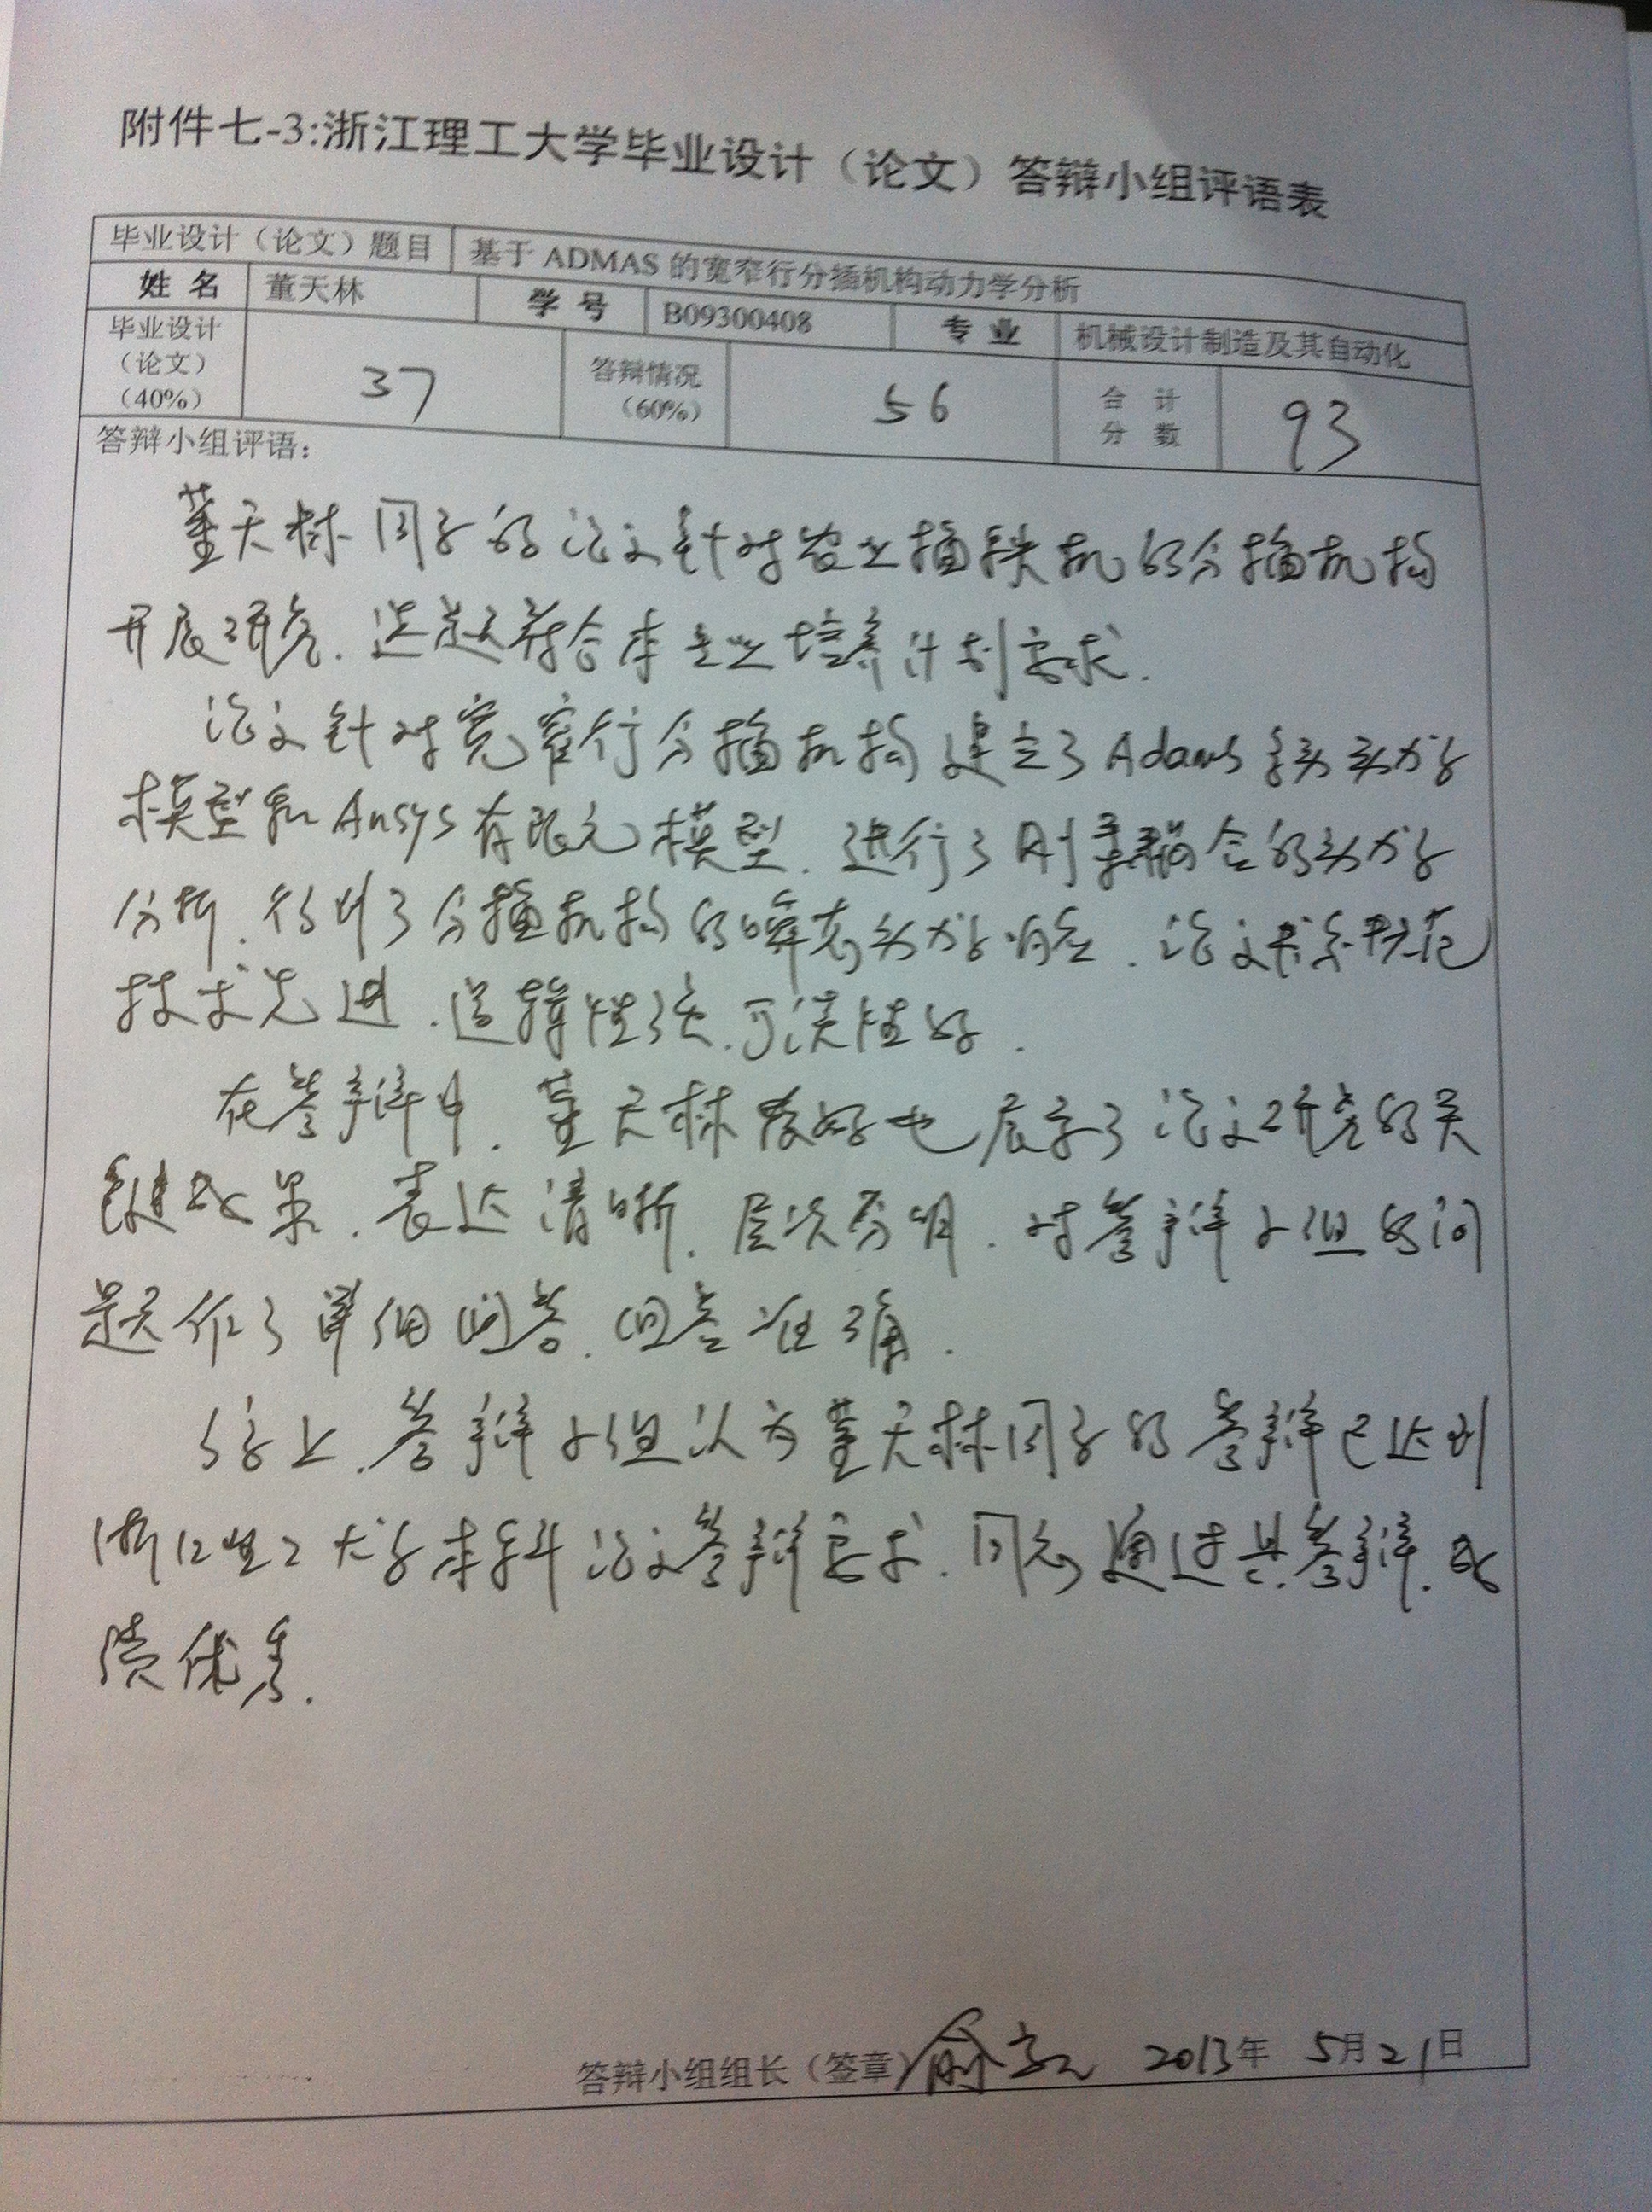 附件七-3:浙江理工大学毕业设计（论文）答辩小组评语表
毕业设计（论文）题目 基于 ADMAS 的宽窄行分插机构动力学分析
姓 名 董天林 学 号 B09300408 专 业 机械设计制造及其自动化
毕业设计（论文）（40%） 37 答辩情况（60%） 56 合 计 分 数 93
答辩小组评语：
董天林同学的论文针对农业插秧机的分插机构
开展研究.选题符合本专业培养计划要求.
论文针对宽窄行分插机构建立了Adams多体动力学
模型和Ansys有限元模型.进行了刚柔耦合的动力学
分析.得到了分插机构的瞬态动力学响应.论文书写规范
技术先进.逻辑性强.可读性好.
在答辩中.董天林较好地展示了论文研究的关
键成果.表达清晰.层次分明.对答辩小组的问
题作了详细回答.回答准确.
综上.答辩小组认为董天林同学的答辩已达到
浙江理工大学本科论文答辩要求.同意通过其答辩.成
绩优秀.
答辩小组组长（签章） 2013年 5月21日